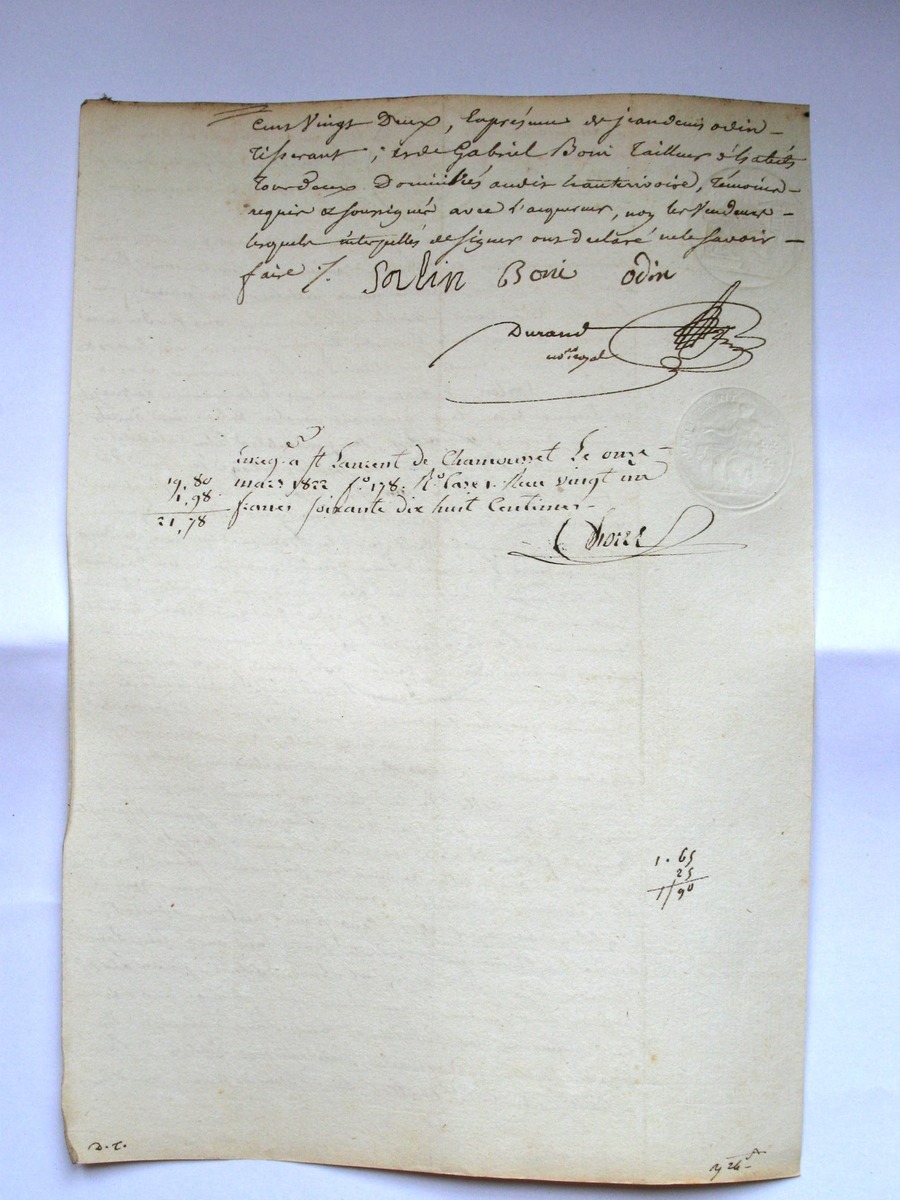 cent Vingt Deux, En présence de jean denis odin
Tisserant, et de Gabriel Boni Tailleur d'habits
Tous Deux Domiciliés audit hauterivoire, Témoins
requis & soussignés avec l'acquereur, non les Vendeurs
lesquels interpellés de signer ont déclaré ne le savoir
faire ./.
Sorlin Boni odin
Durand
nore royal
Enreg. a St Laurent de Chamousset Le onze
mars 1822 fo. 178. Ro. Case 1. Reçu vingt un
francs soixante dix huit Centimes
19,80
1,98
21,78
1.65
25
1,90
D. T.